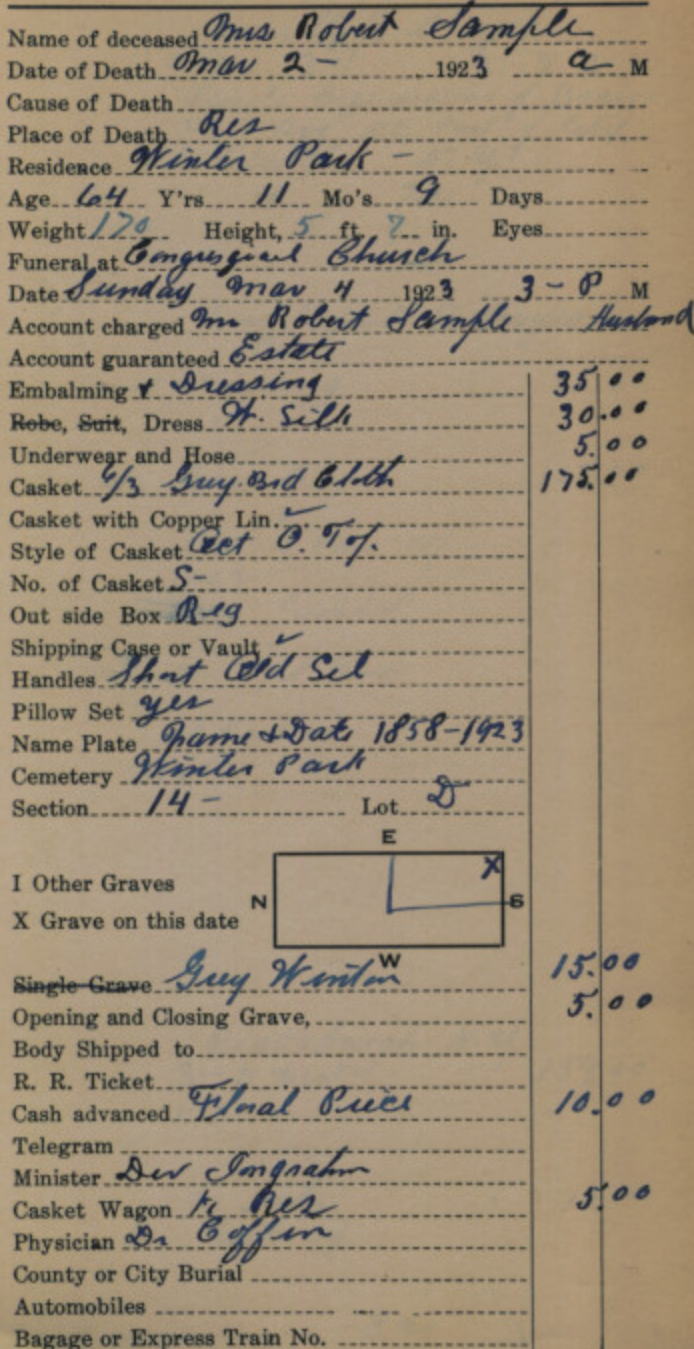 Name of deceased Mrs Robert Sample
Date of Death Mar 2 - 1923 a M
Cause of Death
Place of Death Res
Residence Winter Park -
Age 64 Y'rs 11 Mo's 9 Days
Weight 170 Height, 5 ft 7 in. Eyes
Funeral at Church
Date Sunday Mar 4 1923 3 - P M
Account charged Mr Robert Sample Husband
Account guaranteed Estate
Embalming & Dressing 35.00
Robe, Suit, Dress W. Silk 30.00
Underwear and Hose 5.00
Casket 6/3 Grey Brd Cloth 175.00
Casket with Copper Lin. ✓
Style of Casket Oct
No. of Casket S-
Out side Box Reg
Shipping Case or Vault ✓
Handles Short
Pillow Set yes
Name Plate Name & Date 1858-1923
Cemetery Winter Park
Section 14 - Lot D
E
I Other Graves
N X S
X Grave on this date
W
Single Grave Grey 15.00
Opening and Closing Grave, 5.00
Body Shipped to
R. R. Ticket
Cash advanced Floral Piece 10.00
Telegram
Minister Ingraham
Casket Wagon to Res 5.00
Physician Dr Coffin
County or City Burial
Automobiles
Bagage or Express Train No.